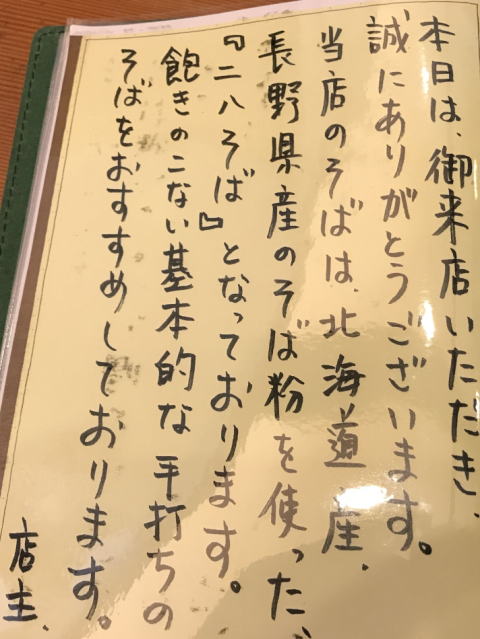 本日は、御来店いただき、
誠にありがとうございます。
当店のそばは、北海道産、
長野県産のそば粉を使った、
『二八そば』となっております。
飽きのこない基本的な平打ちの
そばをおすすめしております。
店主、